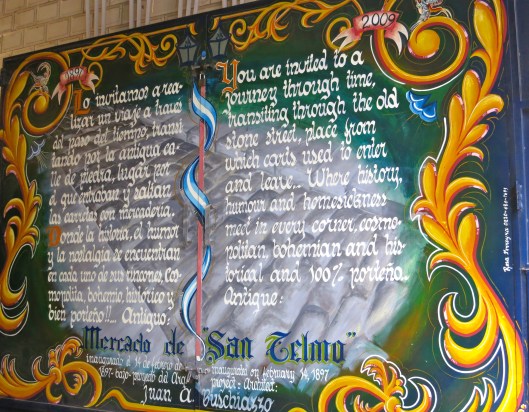 2009
Lo invitamos a rea-
lizar un viaje a través
del paso del tiempo, transi
tando por la antigua ca-
lle de piedra, lugar por
el que entraban y salían
las carretas con mercadería.
Donde la historia, el humor
y la nostalgia se encuentran
en cada uno de sus rincones, Cos-
mopolita, bohemio, histórico y
bien porteño!!.. Antiguo:
You are invited to a
journey through time,
transiting through the old
stone street, place from
which carts used to enter
and leave... Where history,
humour and homesickness
med in every corner, cosmo-
politan, bohemian and his-
torical and 100% porteña.
Antique:
Mercado de "San Telmo"
inaugurado el 14 de febrero de
1897-bajo-proyecto del
inaugurated on february 14, 1897
project- Architect:
Juan A. Buschiazzo